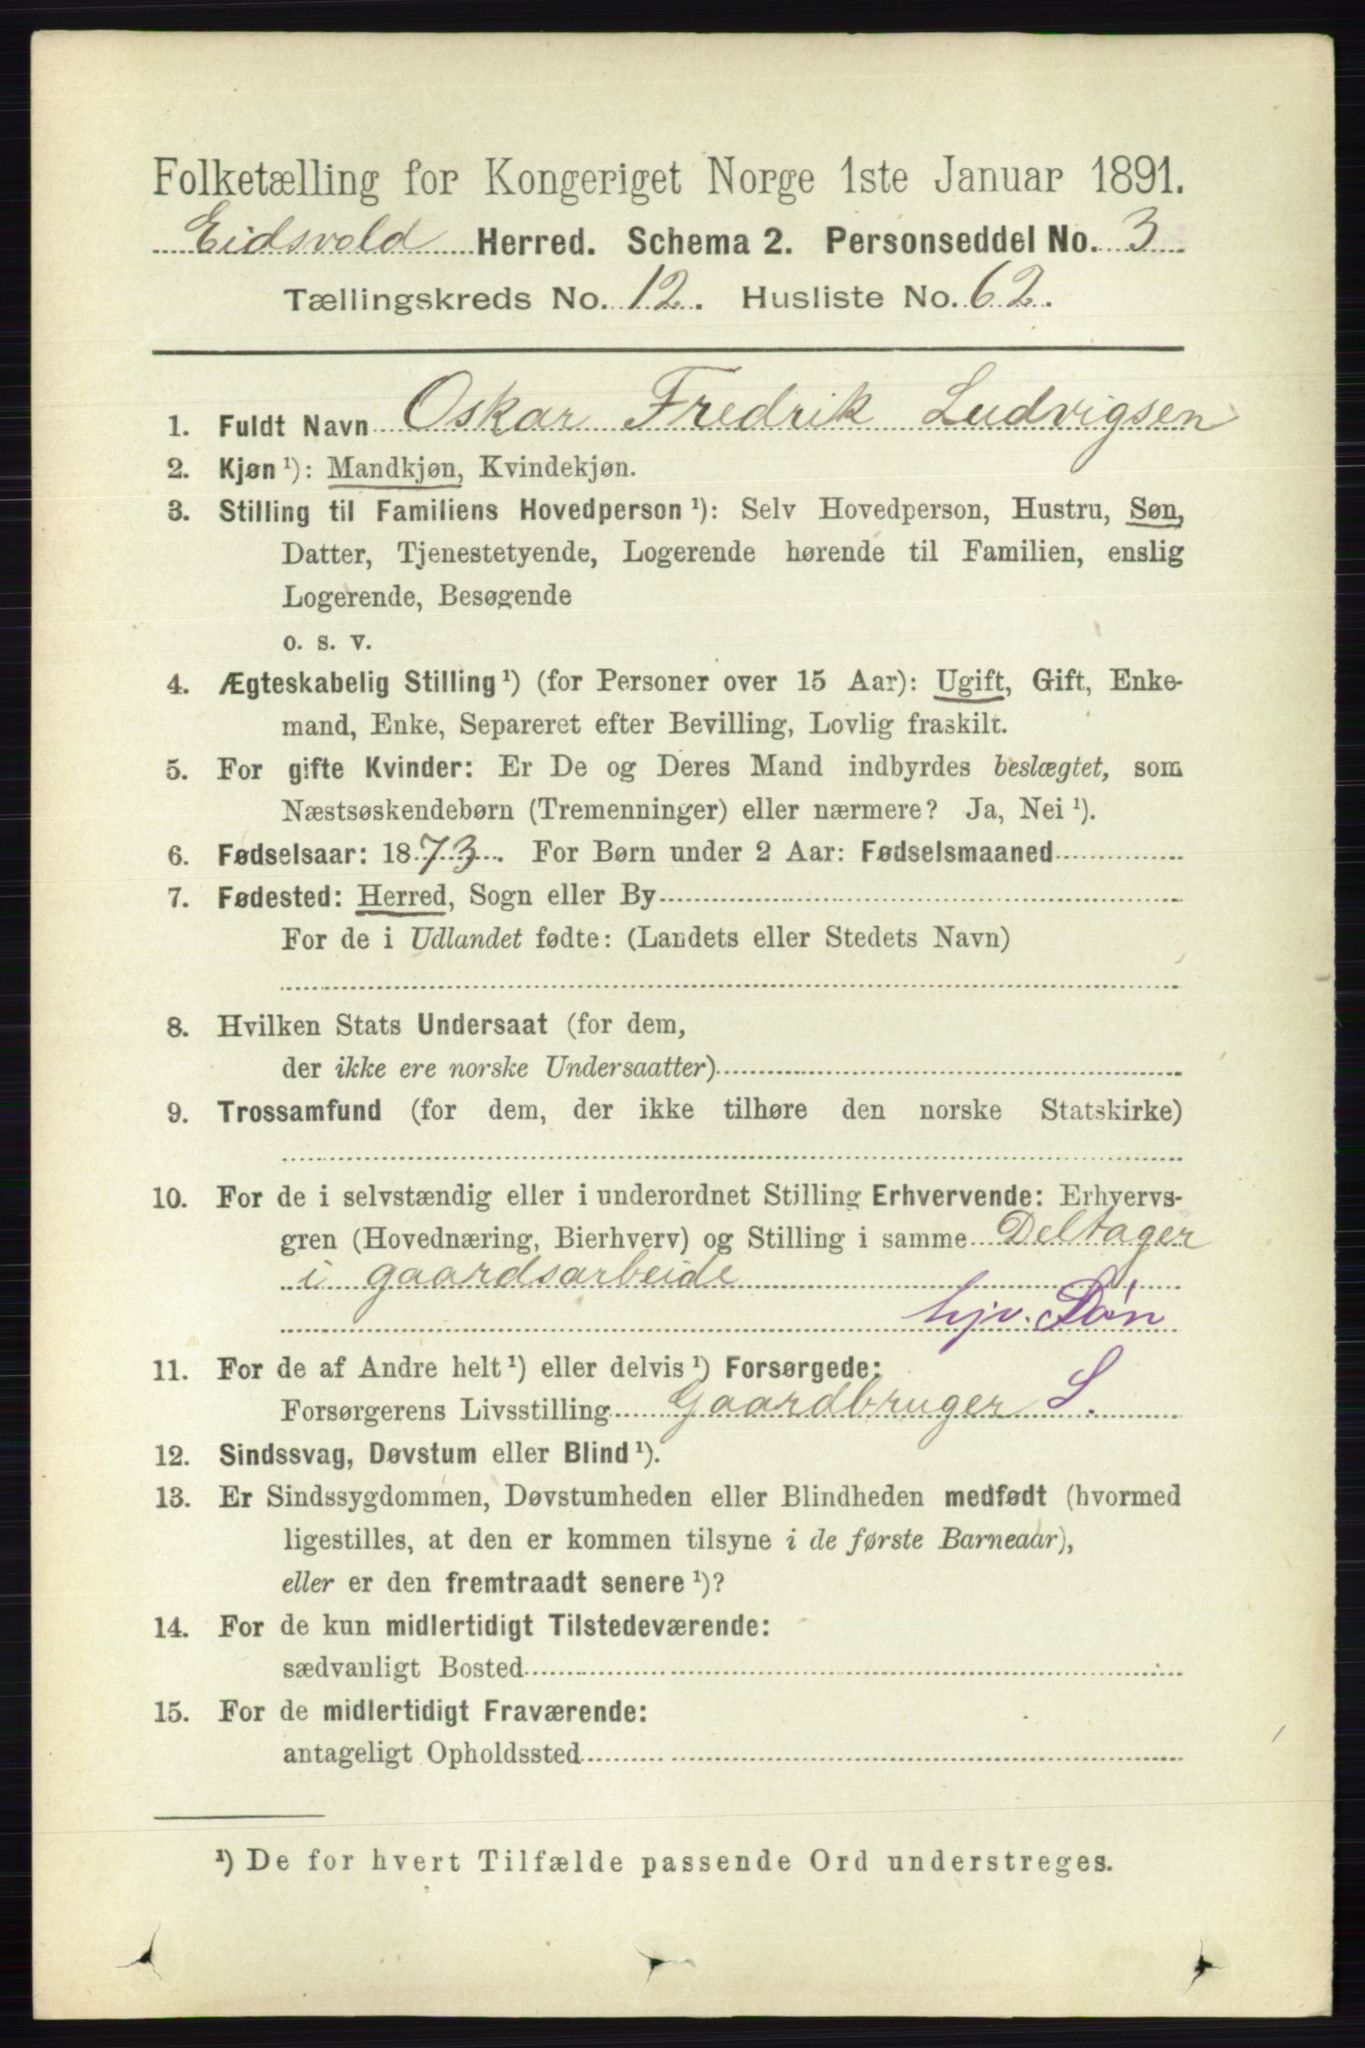 Folketælling for Kongeriget Norge 1ste Januar 1891.
Eidsvold Herred. Schema 2. Personseddel No. 3
Tællingskreds No. 12. Husliste No. 62.
1. Fuldt Navn Oskar Fredrik Ludvigsen
2. Kjøn ¹): Mandkjøn, Kvindekjøn.
3. Stilling til Familiens Hovedperson ¹): Selv Hovedperson, Hustru, Søn,
Datter, Tjenestetyende, Logerende hørende til Familien, enslig
Logerende, Besøgende
o. s. v.
4. Ægteskabelig Stilling ¹) (for Personer over 15 Aar): Ugift, Gift, Enke-
mand, Enke, Separeret efter Bevilling, Lovlig fraskilt.
5. For gifte Kvinder: Er De og Deres Mand indbyrdes beslægtet, som
Næstsøskendebørn (Tremenninger) eller nærmere? Ja, Nei ¹).
6. Fødselsaar: 1873. For Børn under 2 Aar: Fødselsmaaned
7. Fødested: Herred, Sogn eller By
For de i Udlandet fødte: (Landets eller Stedets Navn)
8. Hvilken Stats Undersaat (for dem,
der ikke ere norske Undersaatter)
9. Trossamfund (for dem, der ikke tilhøre den norske Statskirke)
10. For de i selvstændig eller i underordnet Stilling Erhvervende: Erhvervs-
gren (Hovednæring, Bierhverv) og Stilling i samme Deltager
i gaardsarbeide
hjv. Søn
11. For de af Andre helt ¹) eller delvis ¹) Forsørgede:
Forsørgerens Livsstilling Gaardbruger S.
12. Sindssvag, Døvstum eller Blind ¹).
13. Er Sindssygdommen, Døvstumheden eller Blindheden medfødt (hvormed
ligestilles, at den er kommen tilsyne i de første Barneaar),
eller er den fremtraadt senere ¹)?
14. For de kun midlertidigt Tilstedeværende:
sædvanligt Bosted
15. For de midlertidigt Fraværende:
antageligt Opholdssted
¹) De for hvert Tilfælde passende Ord understreges.